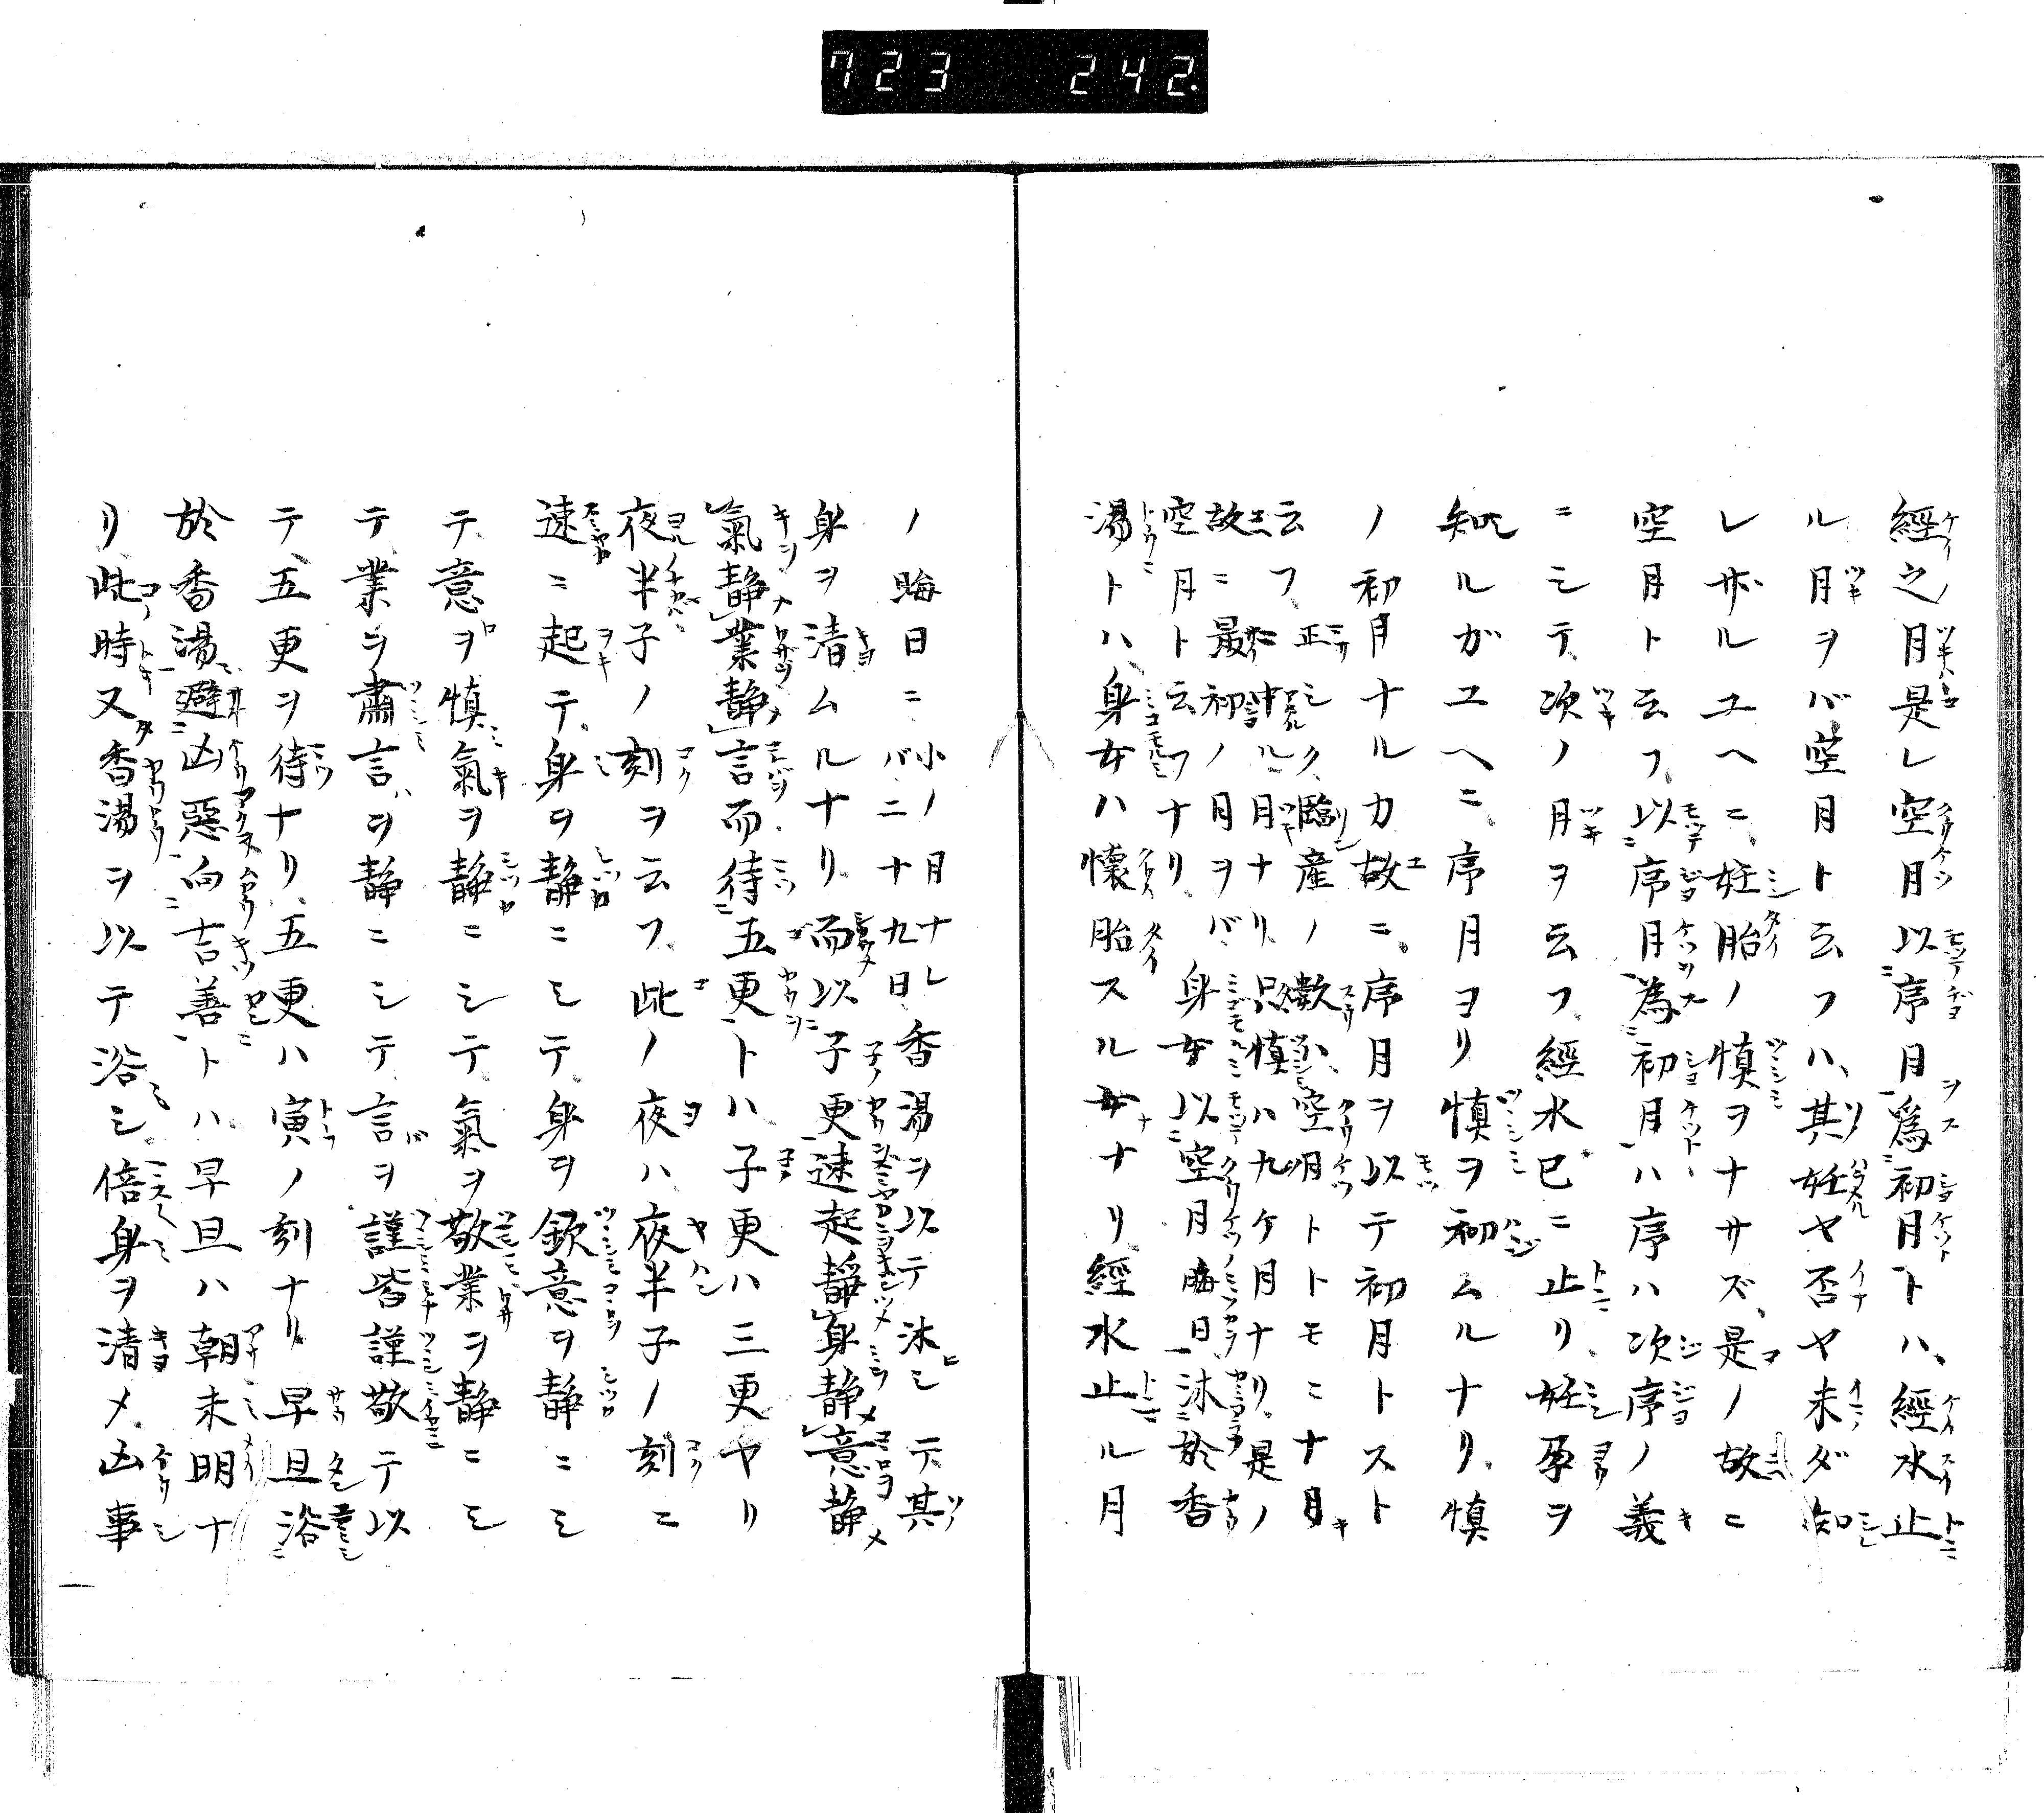 723 242.
經之月是レ空月以序月爲初月トハ、經水止
ル月ヲバ空月ト云フハ、其妊ヤ否ヤ未ダ知
レザルユヘニ、妊胎ノ慎ヲナサズ、是ノ故ニ
空月ト云フ、以序月為初月ハ序ハ次序ノ義
ニシテ、次ノ月ヲ云フ、經水已ニ止リ、妊孕ヲ
知ルガユヘニ、序月ヨリ慎ヲ初ムルナリ、慎
ノ初月ナルカ故ニ、序月ヲ以テ初月トスト
云フ、正シク臨産ノ數ハ、空月トトモニナ月
故ニ中ル月ナリ、只慎ハ九ケ月ナリ、是ノ
故ニ最初ノ月ヲバ身女以空月晦日沐於香
空月ト云フナリ、
湯トハ、身女ハ懐胎スル女ナリ經水止ル月
ノ晦日ニ小ノ月ナレバ二十九日香湯ヲ以テ沐シテ其
身ヲ清ムルナリ、而以子更速起靜身静意静
氣静業静言而待五更トハ、子更ハ三更ヤリ
夜半子ノ刻ヲ云フ、此ノ夜ハ夜半子ノ刻ニ
速ニ起テ、身ヲ静ニシテ、身ヲ欽意ヲ静ニシ
テ、意ヲ慎氣ヲ静ニシテ、氣ヲ敬業ヲ静ニシ
テ、業ヲ肅言ヲ静ニシテ、言ヲ謹皆謹敬テ以
テ、五更ヲ待ナリ、五更ハ寅ノ刻ナリ、早旦浴
於香湯避凶惡向吉善トハ、早旦ハ朝未明ナ
リ、此時又香湯ヲ以テ浴シ、倍身ヲ清メ、凶事